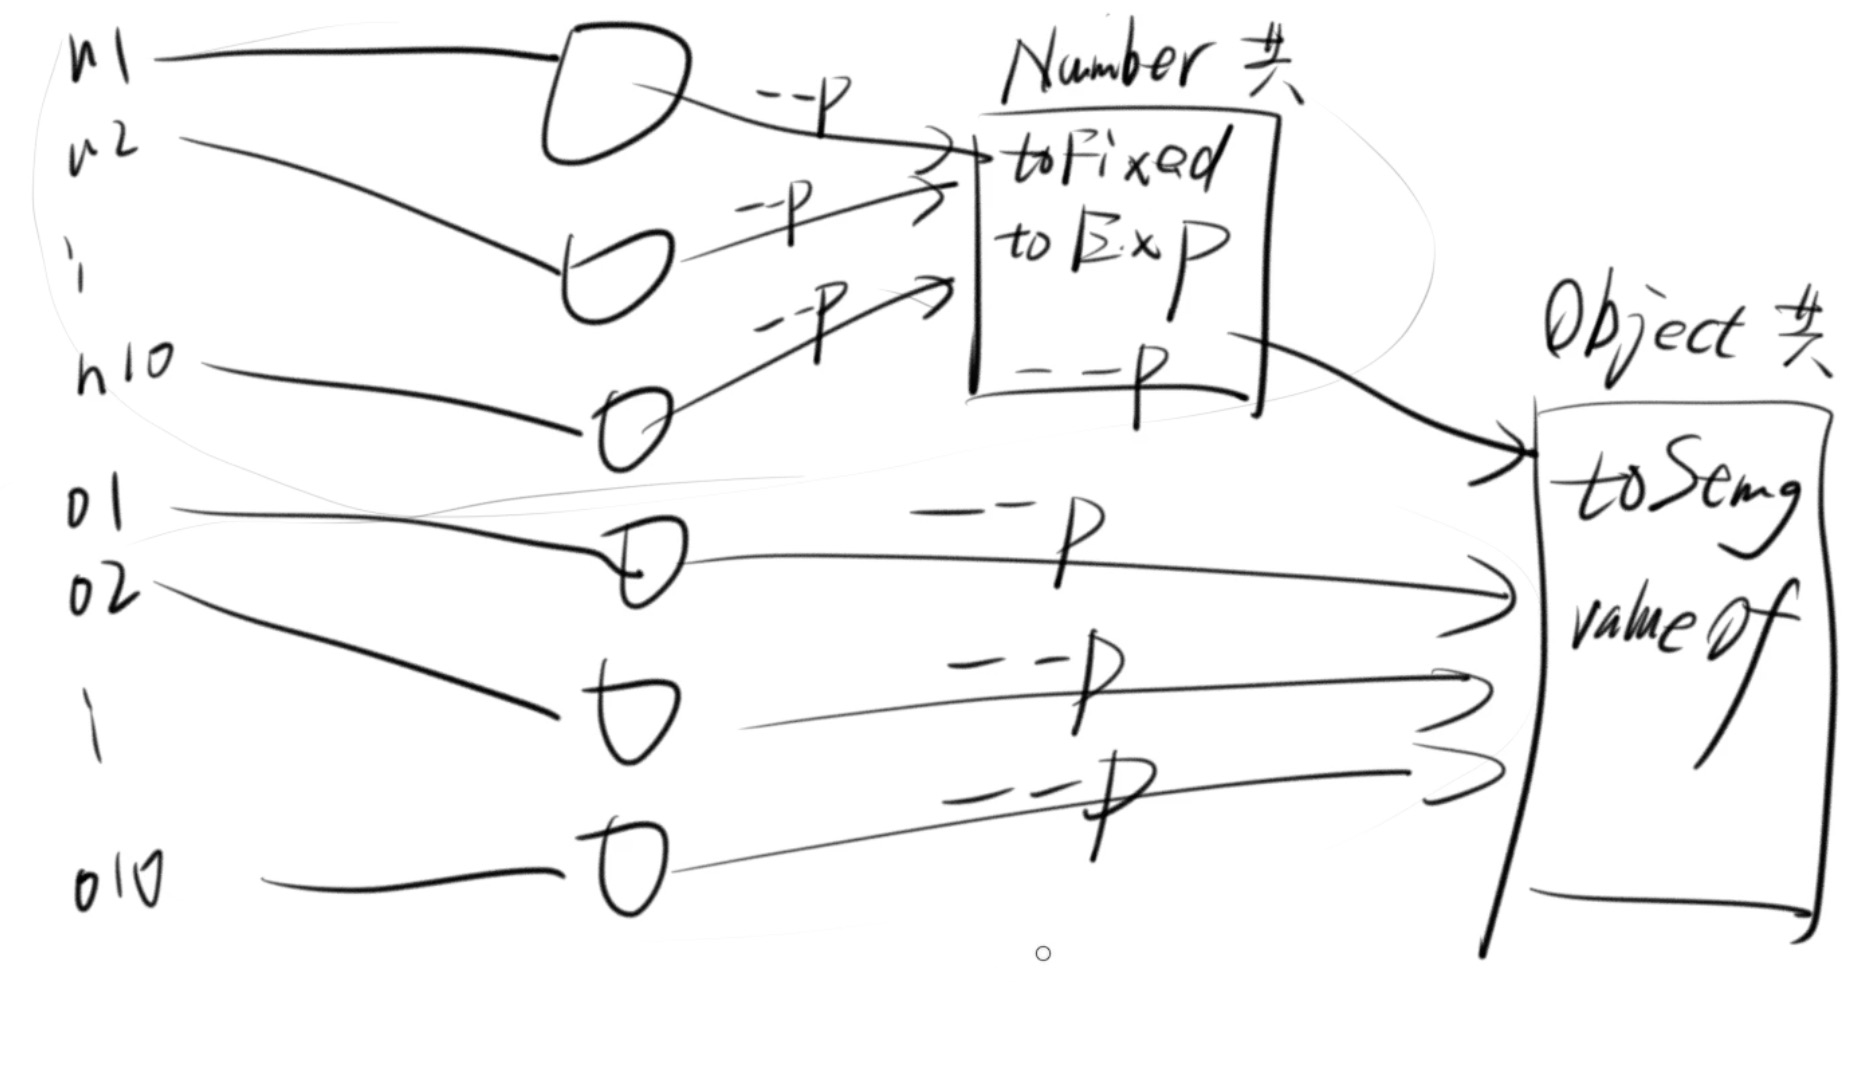 n1
n2
n10
o1
o2
o10
--p
--p
--p
Number 共
toFixed
toExp
--p
--p
--p
--p
Object 共
toString
valueOf